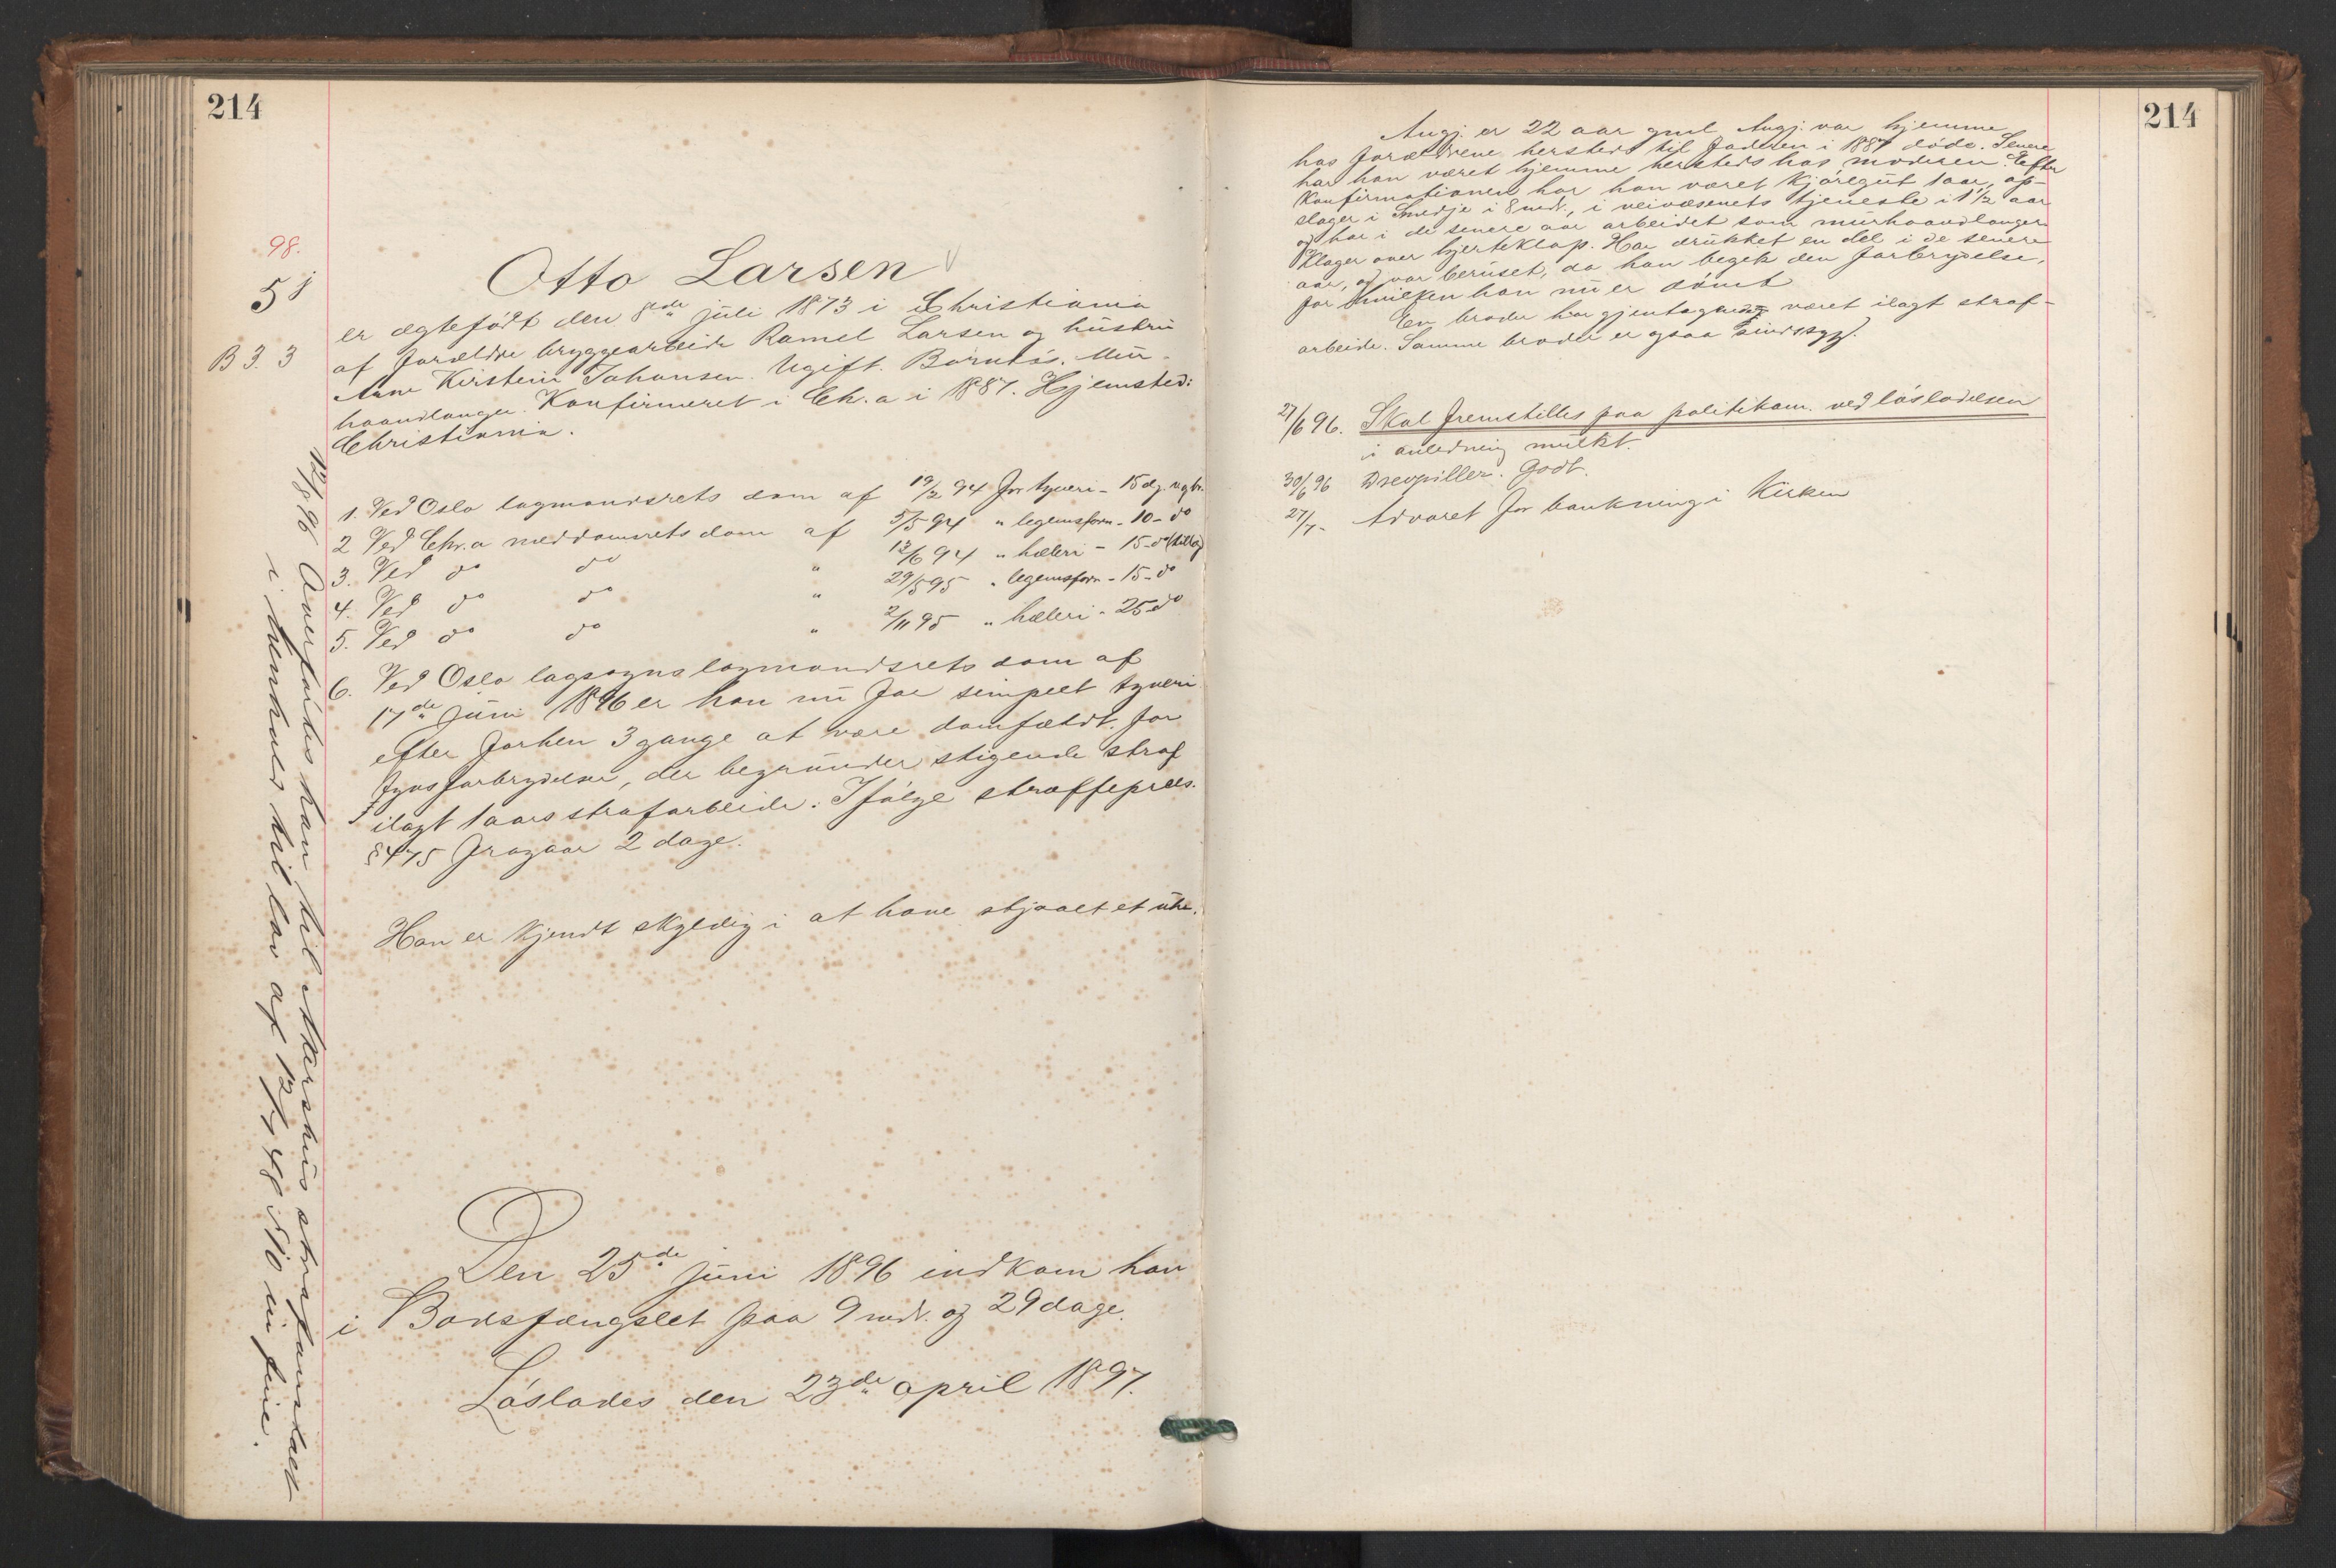 214
98.
58
B 3. 3
Otto Larsen
er ægtefødt den 8de juli 1873 i Christiania
af Forældre bryggearbeider Ramel Larsen og hustru
Anne Kirstein Johansen. Ugift. Børnløs. Mur-
haandlanger. Konfirmeret i Ch.a i 1887. Hjemsted:
Christiania.
1. Ved Oslo lagmandsrets dom af 19/2 94 for tyveri - 15 dg.
2 Ved Chr.a meddomsrets dom af 5/5 94 " legemsforn - 10 - do
3. Ved do do " 12/6 94 " hæleri - 15 - do (tillæg)
4. Ved do do " 29/5 95 " legemsforn - 15 - do
5. Ved do do " 2/11 95 " hæleri - 25 - do
6. Ved Oslo lagsogns lagmandsrets dom af
17de juni 1896 er han nu for simpelt tyveri
efter forhen 3 gange at være domfældt for
tyvsforbrydelser, der begrunder stigende straf
ilagt 1 aars strafarbeide. Ifølge straffepræs.
§ 475 fragaar 2 dage.
Han er kjendt skyldig i at have stjaalet et uhr.
Den 25de juni 1896 indkom han
i Bodsfængslet paa 9 mdr. og 29 dage.
Løslades den 23de april 1897.
12/8 96 Overførtes han til Akershus strafanstalt
i henhold til lov af 12/7 48 § 10 in fine.
214
Angj. er 22 aar gml. Angj. var hjemme
hos Forældrene hersteds til Faderen i 1887 døde. Senere
har han været hjemme hersteds hos moderen. Efter
Konfirmationen har han været Kjøregut 1 aar, op-
slager i Smedje i 8 mdr., i veivæsenets tjeneste i 1 1/2 aar
og har i de senere aar arbeidet som murhaandlanger
Klager over hjerteklap. Har drukket en del i de senere
aar, og var beruset, da han begik den Forbrydelse,
for hvilken han nu er dømt
En broder har gjentagende været ilagt straf-
arbeide. Samme broder er ogsaa sindssyg.
27/6 96. Skal fremstilles paa politikam. ved løsladelsen
i anledning mulkt.
30/6 96 Drevpiller. Godt.
27/7 - Advaret for bankning i Kirken